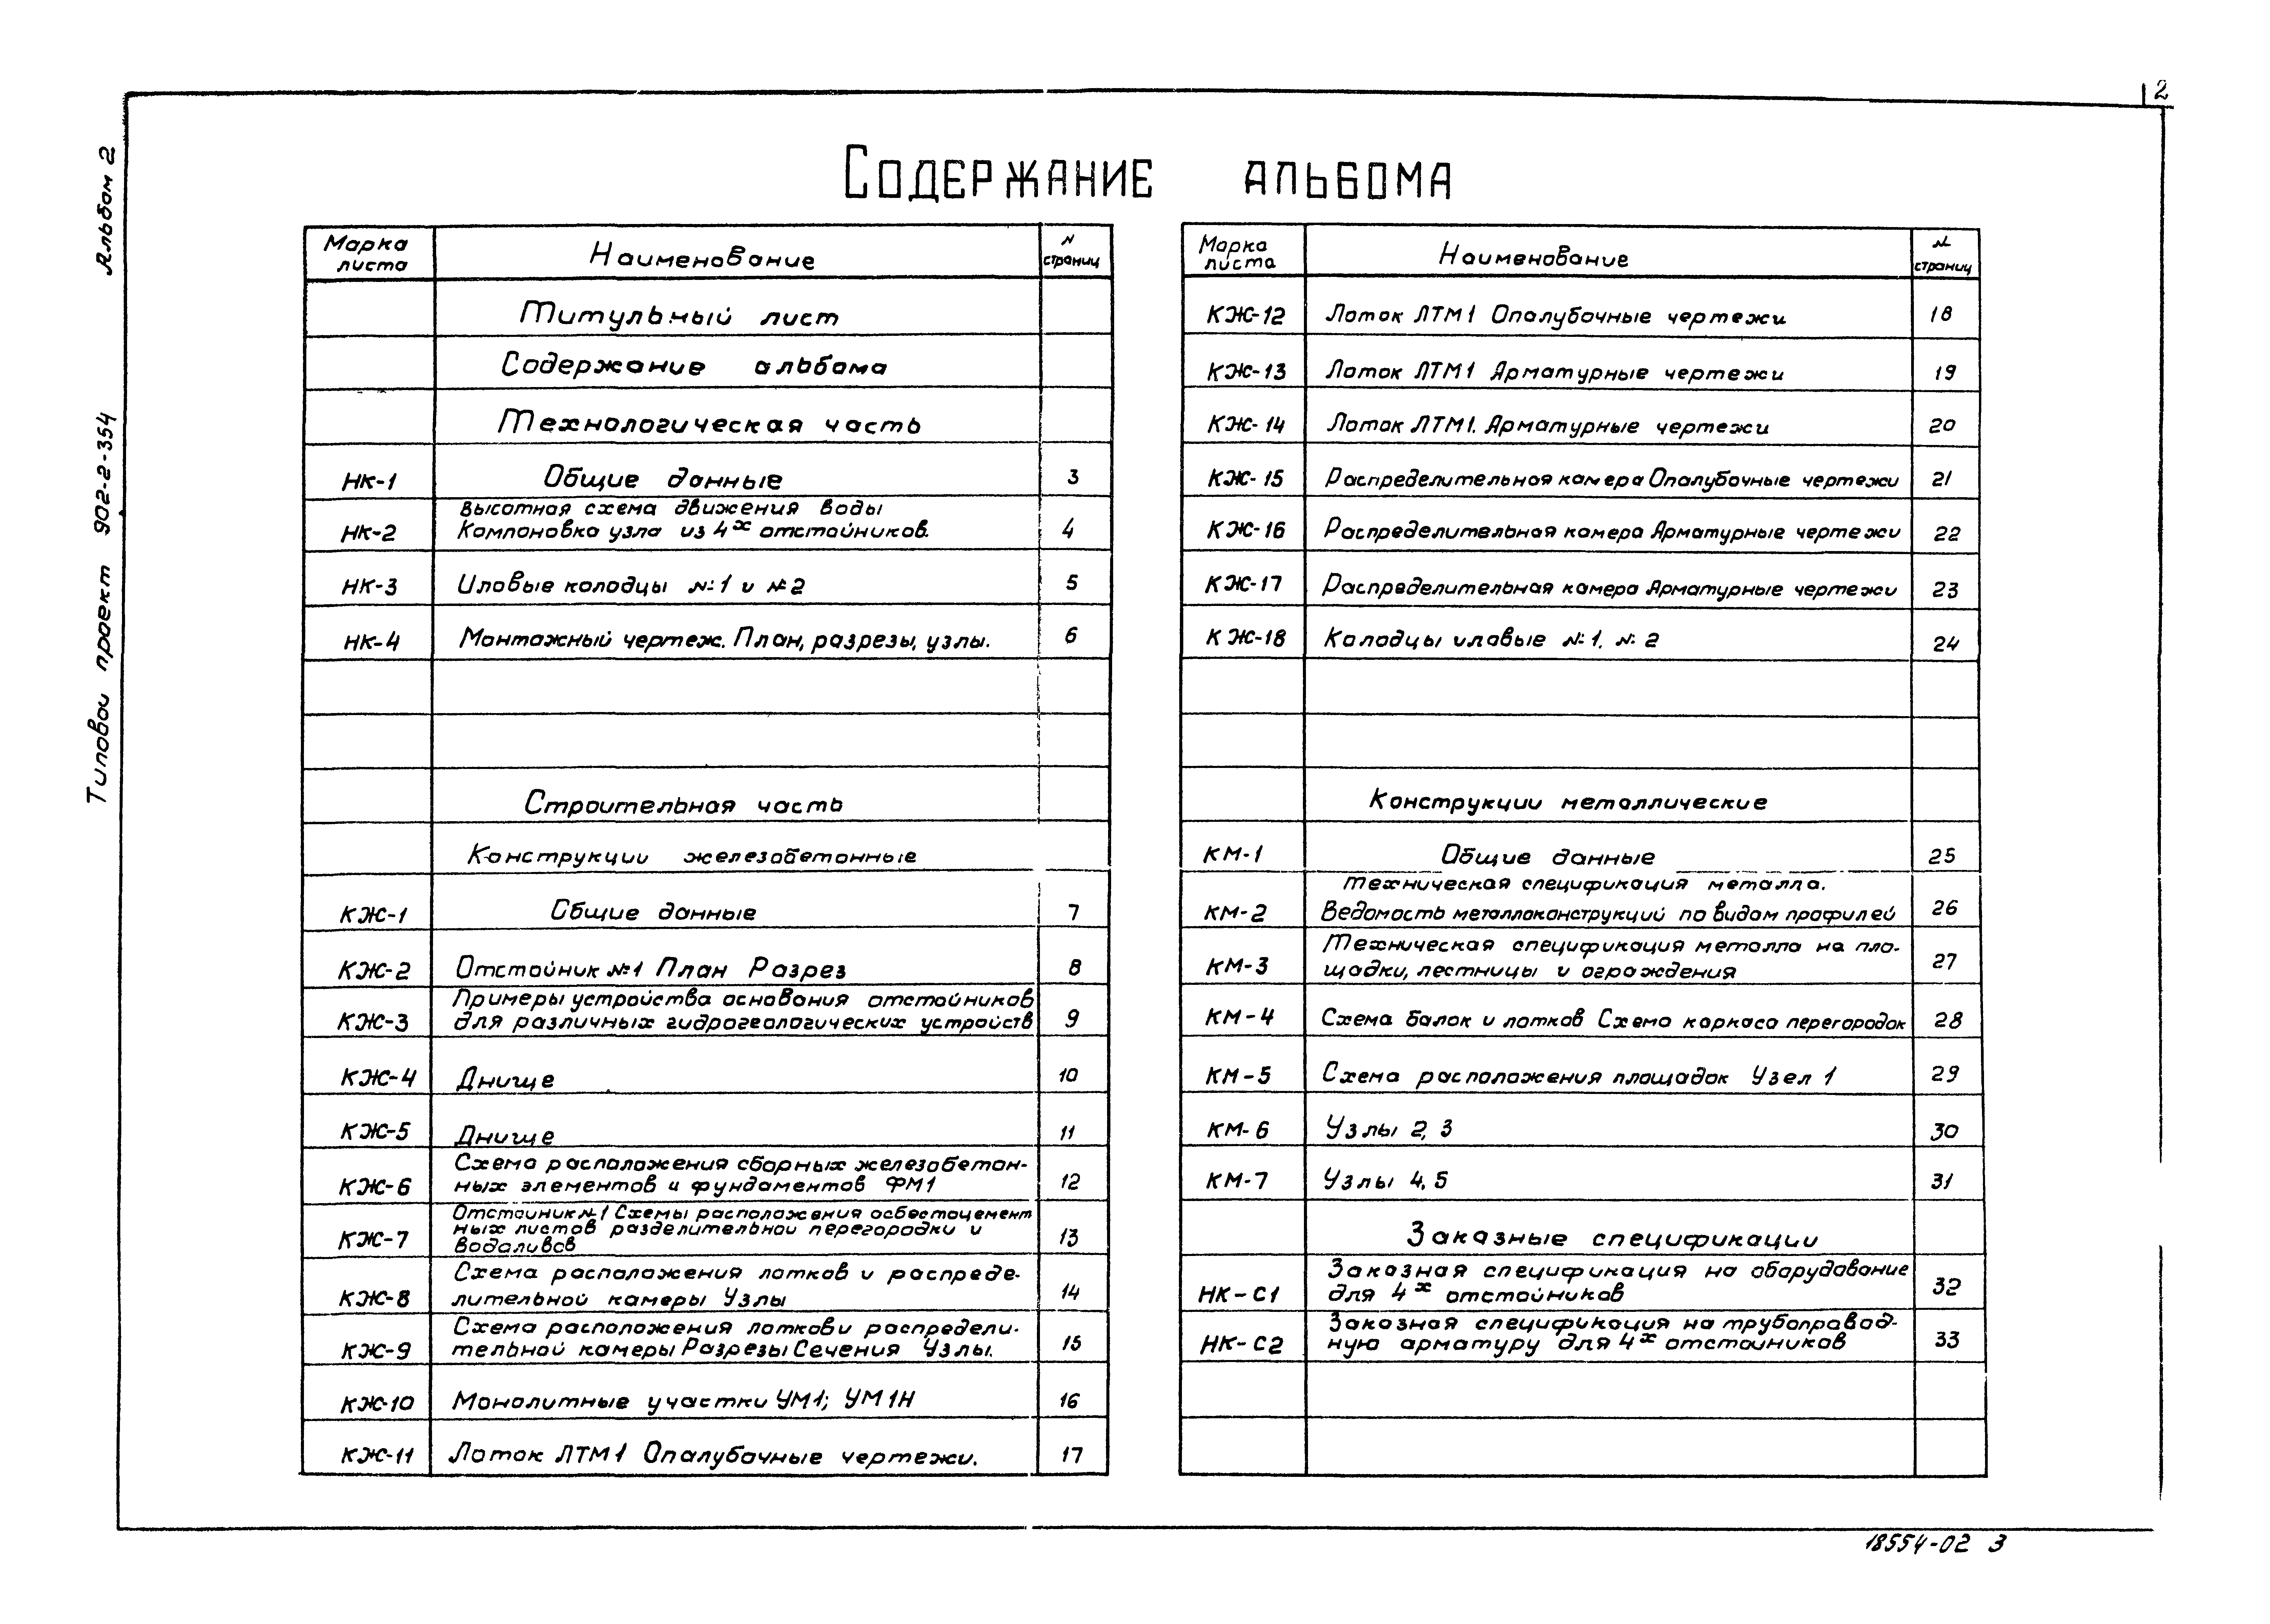 2
Альбом 2
Типовой проект 902-2-354
Содержание альбома
Марка листа Наименование N страниц
Титульный лист
Содержание альбома
Технологическая часть
НК-1 Общие данные 3
Высотная схема движения воды
НК-2 Компоновка узла из 4х отстойников. 4
НК-3 Иловые колодцы №1 и №2 5
НК-4 Монтажный чертеж. План, разрезы, узлы. 6
Строительная часть
Конструкции железобетонные
КЖ-1 Общие данные 7
КЖ-2 Отстойник №1 План Разрез 8
Примеры устройства основания отстойников
КЖ-3 для различных гидрогеологических устройств 9
КЖ-4 Днище 10
КЖ-5 Днище 11
Схема расположения сборных железобетон-
КЖ-6 ных элементов и фундаментов ФМ1 12
Отстойник №1 Схемы расположения асбестоцемент
ных листов разделительной перегородки и
КЖ-7 водаливов 13
Схема расположения лотков и распреде-
КЖ-8 лительной камеры Узлы 14
Схема расположения лотков и распредели-
КЖ-9 тельной камеры Разрезы Сечения Узлы. 15
КЖ-10 Монолитные участки УМ1; УМ1Н 16
КЖ-11 Лоток ЛТМ1 Опалубочные чертежи. 17
Марка листа Наименование N страниц
КЖ-12 Лоток ЛТМ1 Опалубочные чертежи 18
КЖ-13 Лоток ЛТМ1 Арматурные чертежи 19
КЖ-14 Лоток ЛТМ1. Арматурные чертежи 20
КЖ-15 Распределительная камера Опалубочные чертежи 21
КЖ-16 Распределительная камера Арматурные чертежи 22
КЖ-17 Распределительная камера Арматурные чертежи 23
КЖ-18 Колодцы иловые №1, №2 24
Конструкции металлические
КМ-1 Общие данные 25
Техническая спецификация металла.
КМ-2 Ведомость металлоконструкций по видам профилей 26
Техническая спецификация металла на пло-
КМ-3 щадки, лестницы и ограждения 27
КМ-4 Схема балок и лотков Схема каркаса перегородок 28
КМ-5 Схема расположения площадок Узел 1 29
КМ-6 Узлы 2, 3 30
КМ-7 Узлы 4, 5 31
Заказные спецификации
Заказная спецификация на оборудование
НК-С1 для 4х отстойников 32
Заказная спецификация на трубопровод-
НК-С2 ную арматуру для 4х отстойников 33
18554-02 3